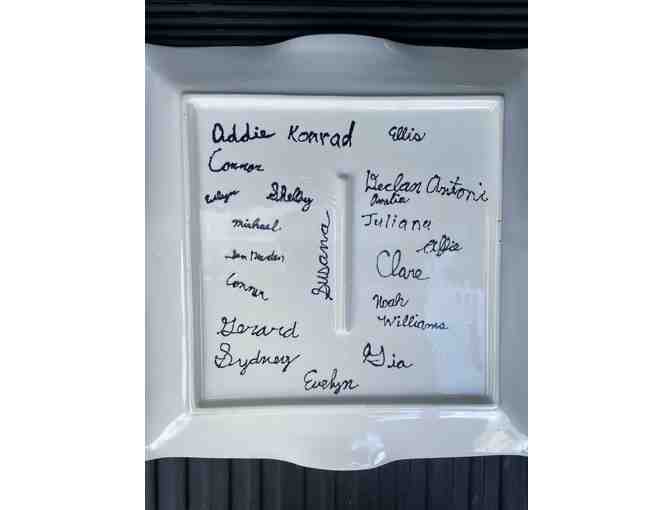 Addie Konrad Ellis
Connor
Evelyn Shelby
Declan Antoni
Amelia
Michael
Juliana
Susana
Alfie
Clare
Connor
Noah
Williams
Gerard
Sydney
Gia
Evelyn